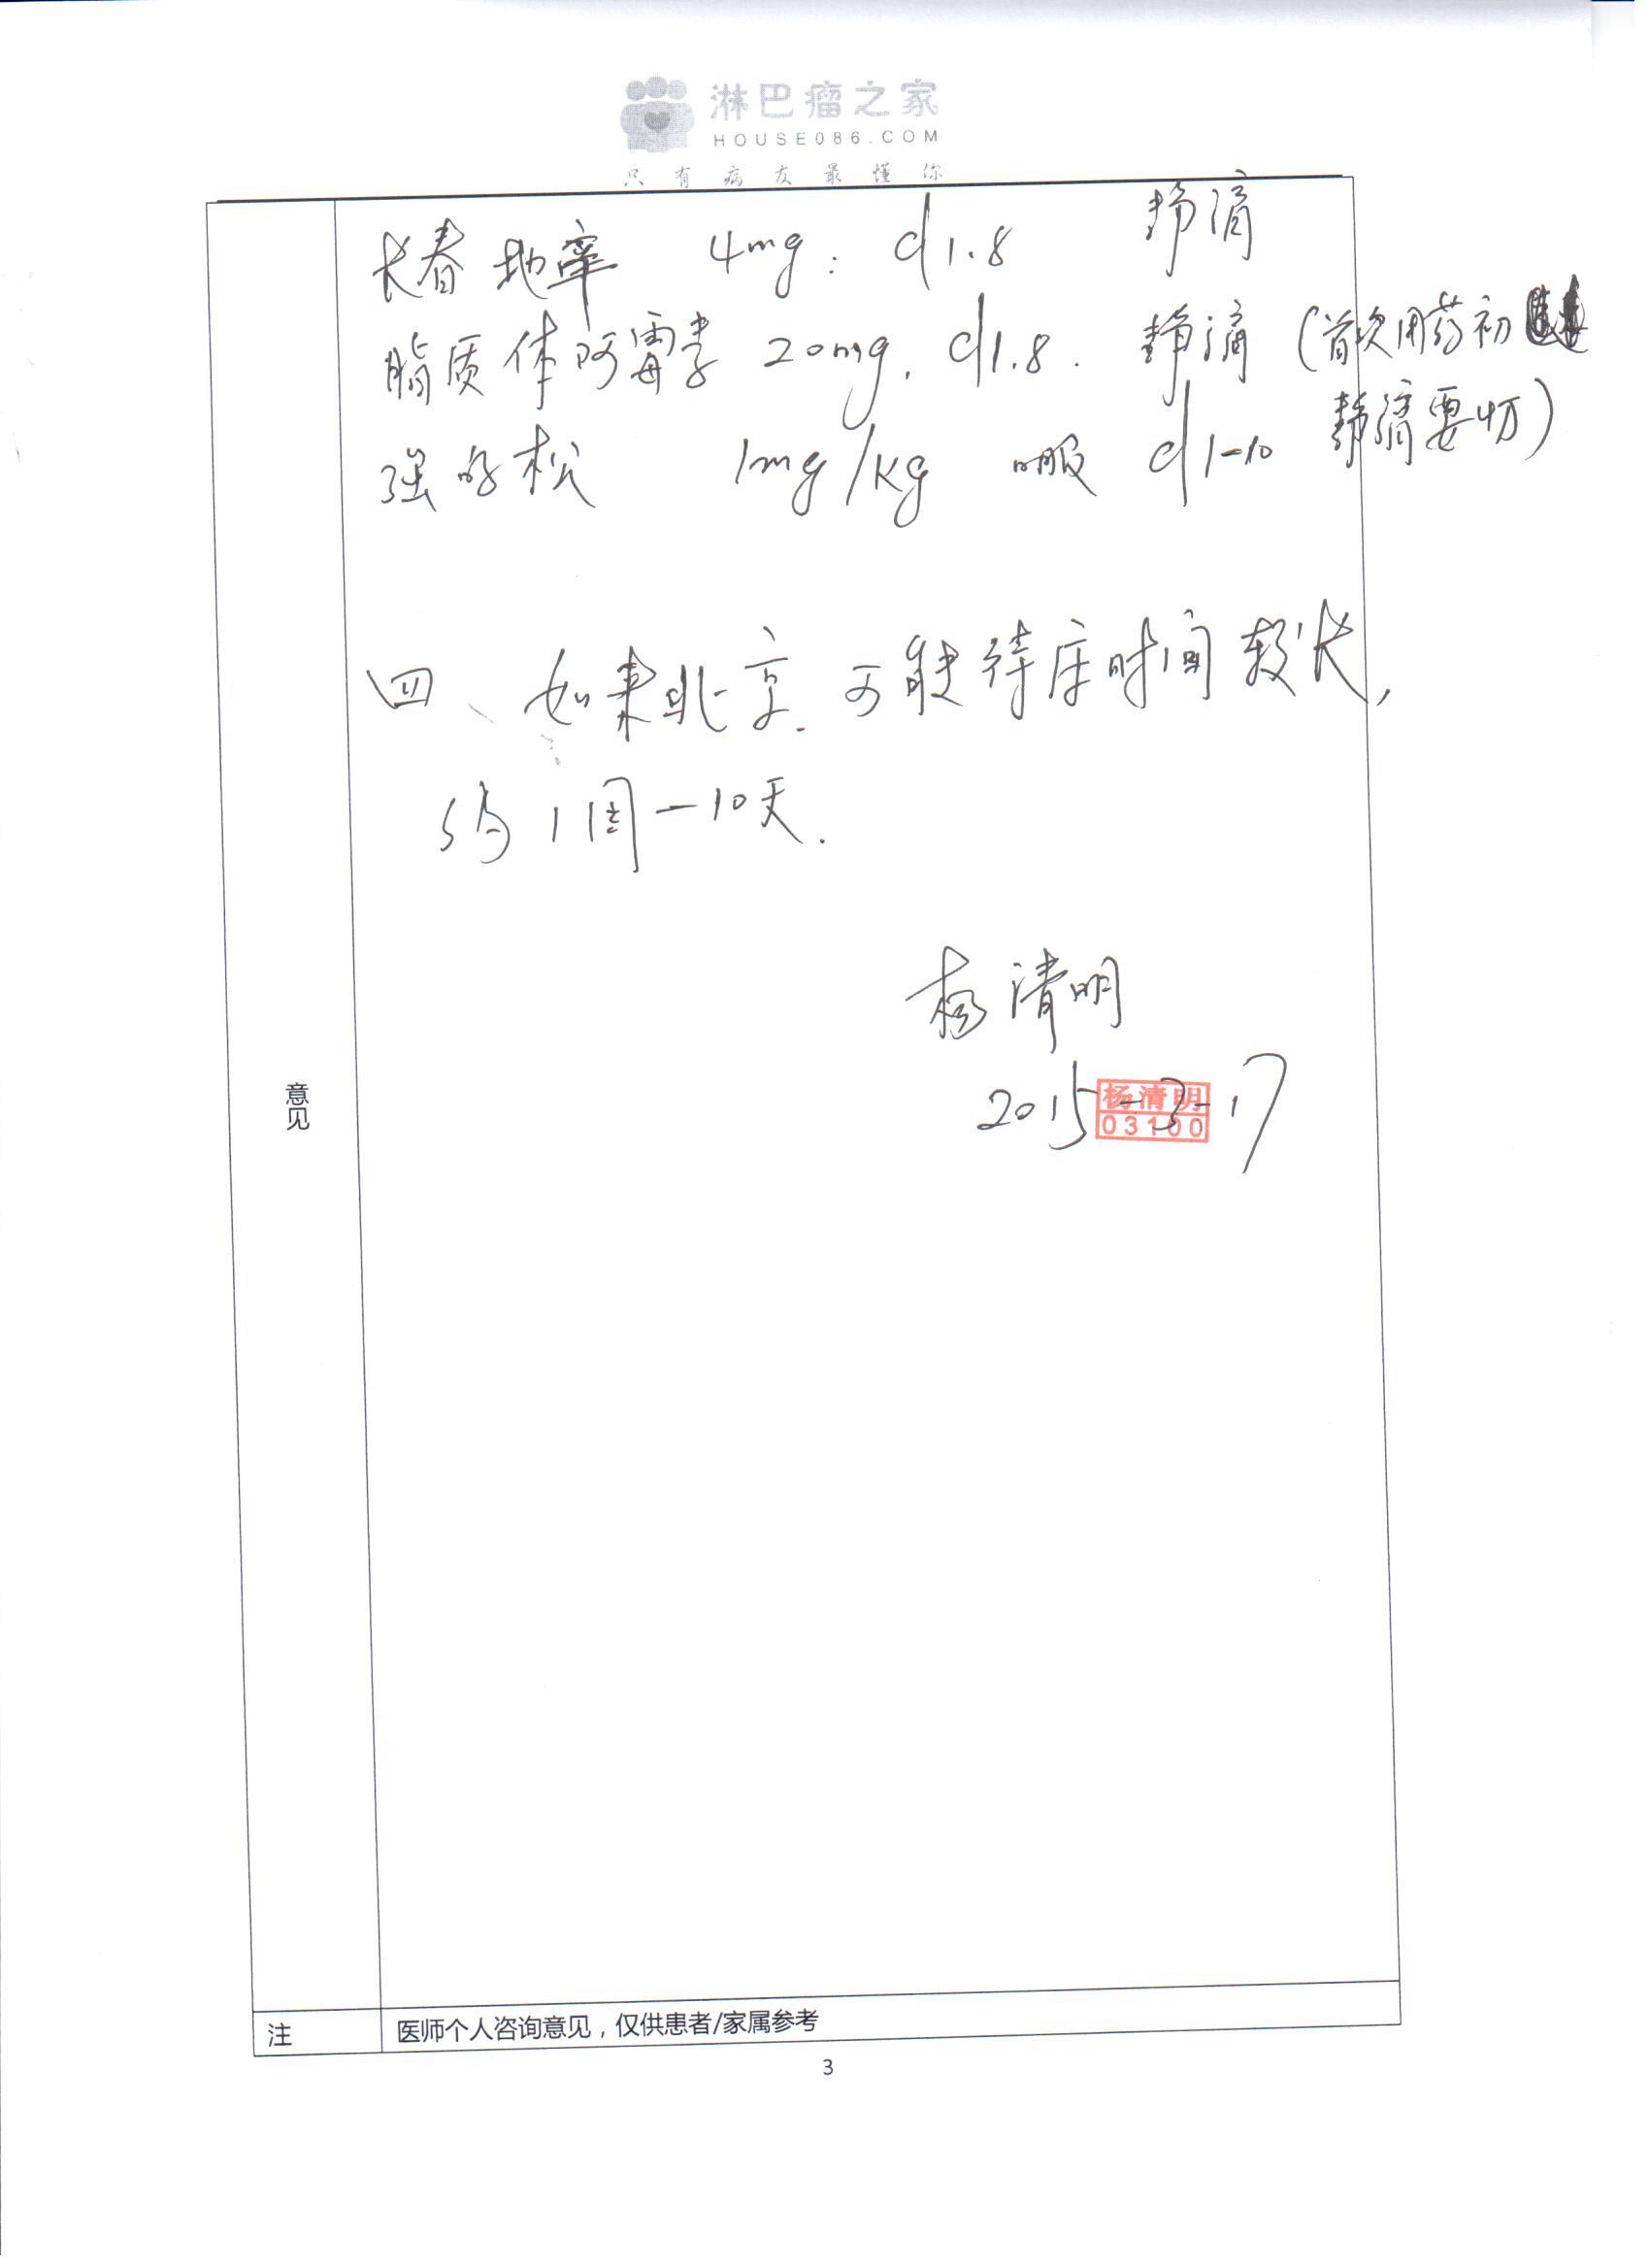 淋巴瘤之家
HOUSE086.COM
只有病友最懂你
长春地辛 4mg: d1.8 静滴
脂质体阿霉素 20mg. d1.8. 静滴 (首次用药初
静滴要慢)
强的松 1mg/kg 口服 d1-10
四、如来北京.可能待床时间较长,
约1周-10天.
杨清明
2015-3-17
杨清明
03100
意见
注 医师个人咨询意见,仅供患者/家属参考
3